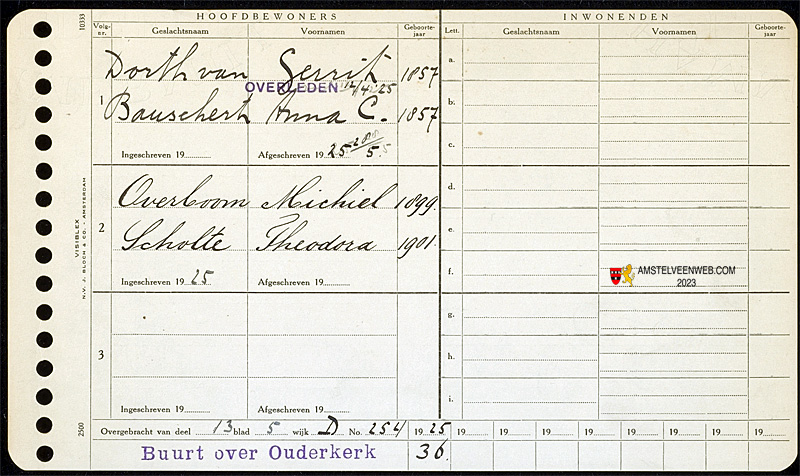 HOOFDBEWONERS
INWONENDEN
10333
Volg-nr.
Geslachtsnaam
Voornamen
Geboorte-jaar
Lett.
Geslachtsnaam
Voornamen
Geboorte-jaar
1
Dorth van Gerrit 1857
OVERLEDEN 12/4 25
Bauschert Anna C. 1857
Ingeschreven 19
Afgeschreven 19 25 5
2
Overboom Michiel 1899
Scholte Theodora 1901.
Ingeschreven 19 25
Afgeschreven 19
3
Ingeschreven 19
Afgeschreven 19
a.
b.
c.
d.
e.
f.
g.
h.
i.
VISIBLEX
N.V. J. BLOCH & CO. - AMSTERDAM
2500
AMSTELVEENWEB.COM
2023
Overgebracht van deel 13 blad 5 wijk D No. 254 19 25 19 19 19 19 19 19 19 19
Buurt over Ouderkerk 36.